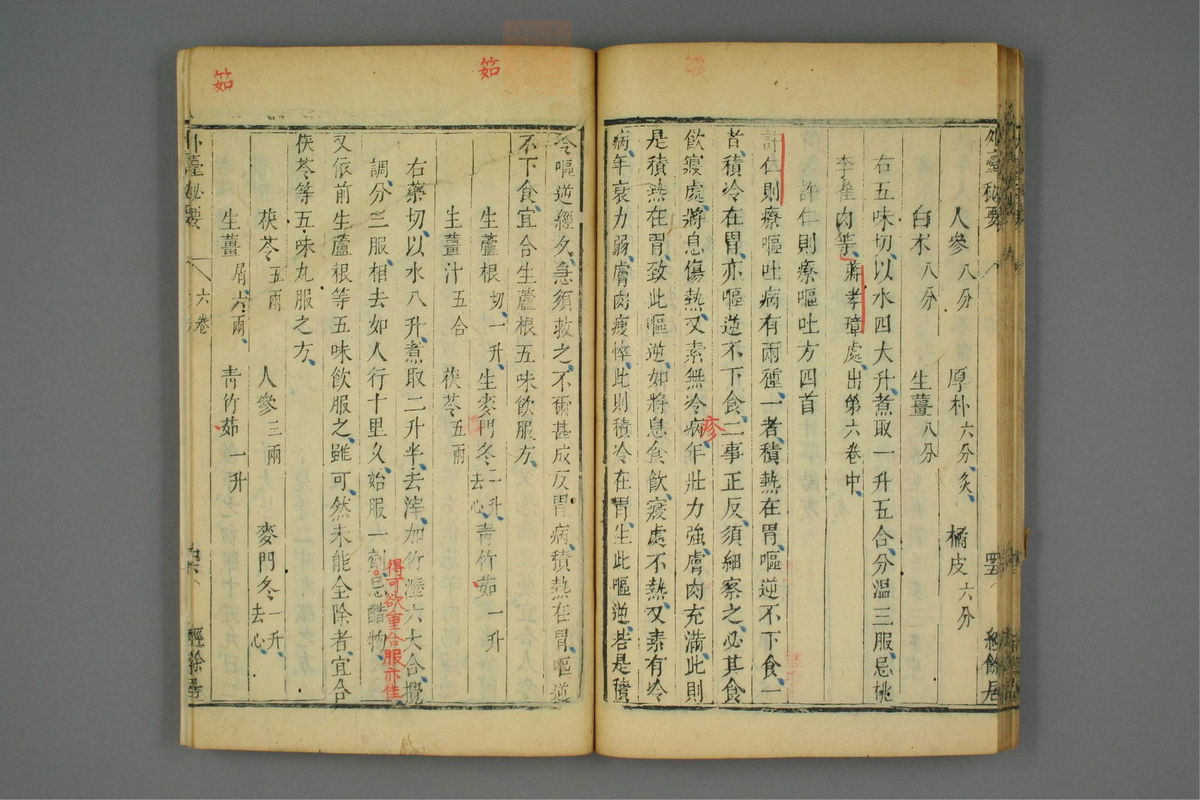 外臺秘要
四五
經餘居
人參八分 厚朴六分炙 橘皮六分
白朮八分 生薑八分
右五味切以水四大升煮取一升五合分溫三服忌桃
李雀肉等蔣孝璋處出第六卷中
許仁則療嘔吐方四首
許仁則療嘔吐病有兩種一者積熱在胃嘔逆不下食一
者積冷在胃亦嘔逆不下食二事正反須細察之必其食
飲寢處將息傷熱又素無冷病年壯力強膚肉充滿此則
疹
是積熱在胃致此嘔逆如將息食飲寢處不熱又素有冷
病年衰力弱膚肉瘦悴此則積冷在胃生此嘔逆若是積
茹
令嘔逆經久急須救之不爾甚成反胃病積熱在胃嘔逆
不下食宜合生蘆根五味飲服方
生蘆根切一升 生麥門冬二升去心 青竹茹一升
生薑汁五合 茯苓五兩
右藥切以水八升煮取二升半去滓加竹瀝六大合攪
調分三服相去如人行十里久始服一劑忌醋物
得可欲重合服亦佳
又依前生蘆根等五味飲服之雖可然未能全除者宜合
茯苓等五味丸服之方
茯苓五兩 人參三兩 麥門冬一升去心
生薑屑六兩 青竹茹一升
茹
外臺秘要
六卷
經餘居